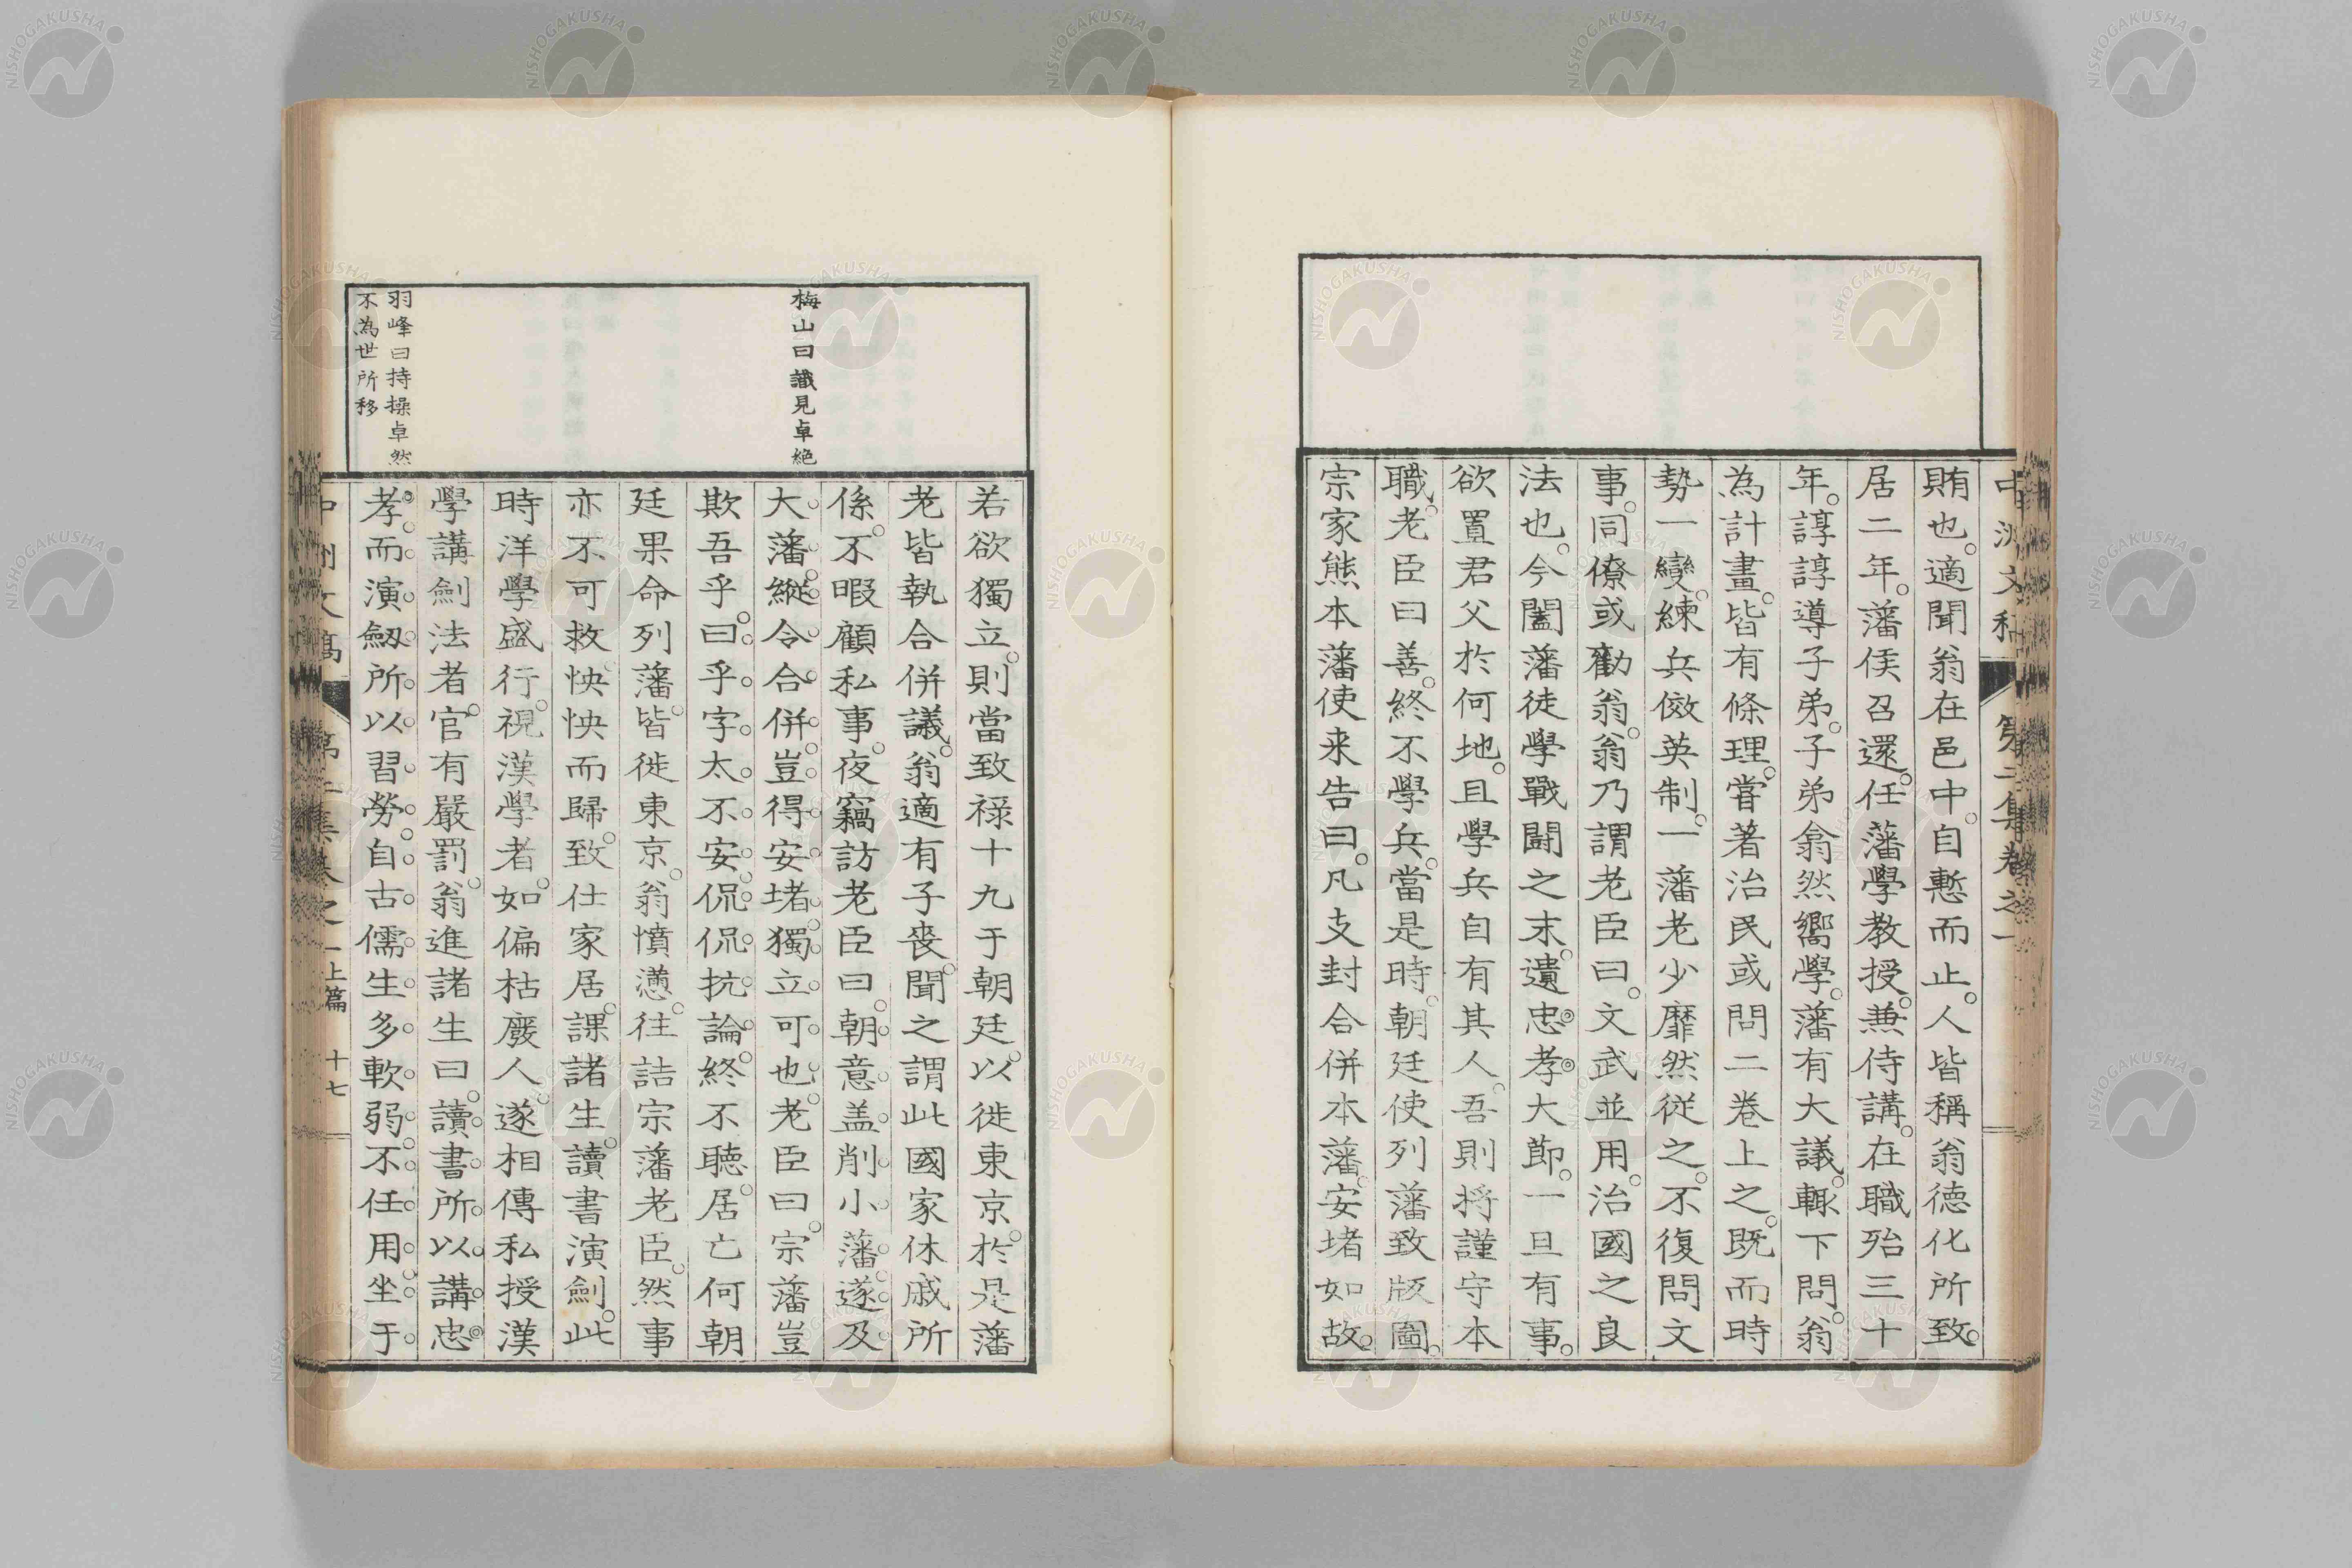 賄也。適聞翁在邑中。自慙而止。人皆稱翁德化所致。
居二年。藩侯召還。任藩學教授。兼侍講。在職殆三十
年。諄諄導子弟。子弟翕然嚮學。藩有大議。輙下問。翁
為計畫。皆有條理。嘗著治民或問二巻上之。既而時
勢一變。練兵倣英制。一藩老少靡然從之。不復問文
事。同僚或勸翁。翁乃謂老臣曰。文武並用。治國之良
法也。今闔藩徒學戰鬪之末。遺忠孝大節。一旦有事。
欲置君父於何地。且學兵自有其人。吾則將謹守本
職。老臣曰善。終不學兵。當是時。朝廷使列藩致版圖。
宗家熊本藩使来告曰。凡支封合併本藩。安堵如故。
若欲獨立。則當致禄十九于朝廷。以徙東京。於是藩
老皆執合併議。翁適有子喪。聞之謂此國家休戚所
係。不暇顧私事。夜竊訪老臣曰。朝意盖削小藩。遂及
大藩。縱令合併。豈得安堵。獨立可也。老臣曰。宗藩豈
欺吾乎。曰。乎字太不安。侃侃抗論。終不聴。居亡何朝
廷果命列藩。皆徙東京。翁憤懣。往詰宗藩老臣。然事
亦不可救。怏怏而歸。致仕家居。課諸生。讀書演劍。此
時洋學盛行。視漢學者。如偏枯廢人。遂相傳私授漢
學講劍法者。官有嚴罰。翁進諸生曰。讀書所以講忠
孝。而演劔所以習勞。自古儒生多軟弱。不任用。坐于
梅山曰識見卓絶
羽峰曰持操卓然
不為世所移
中洲文稿 第二集巻之一
中洲文稿 第二集巻之一 上篇 十七
NISHOGAKUSHA